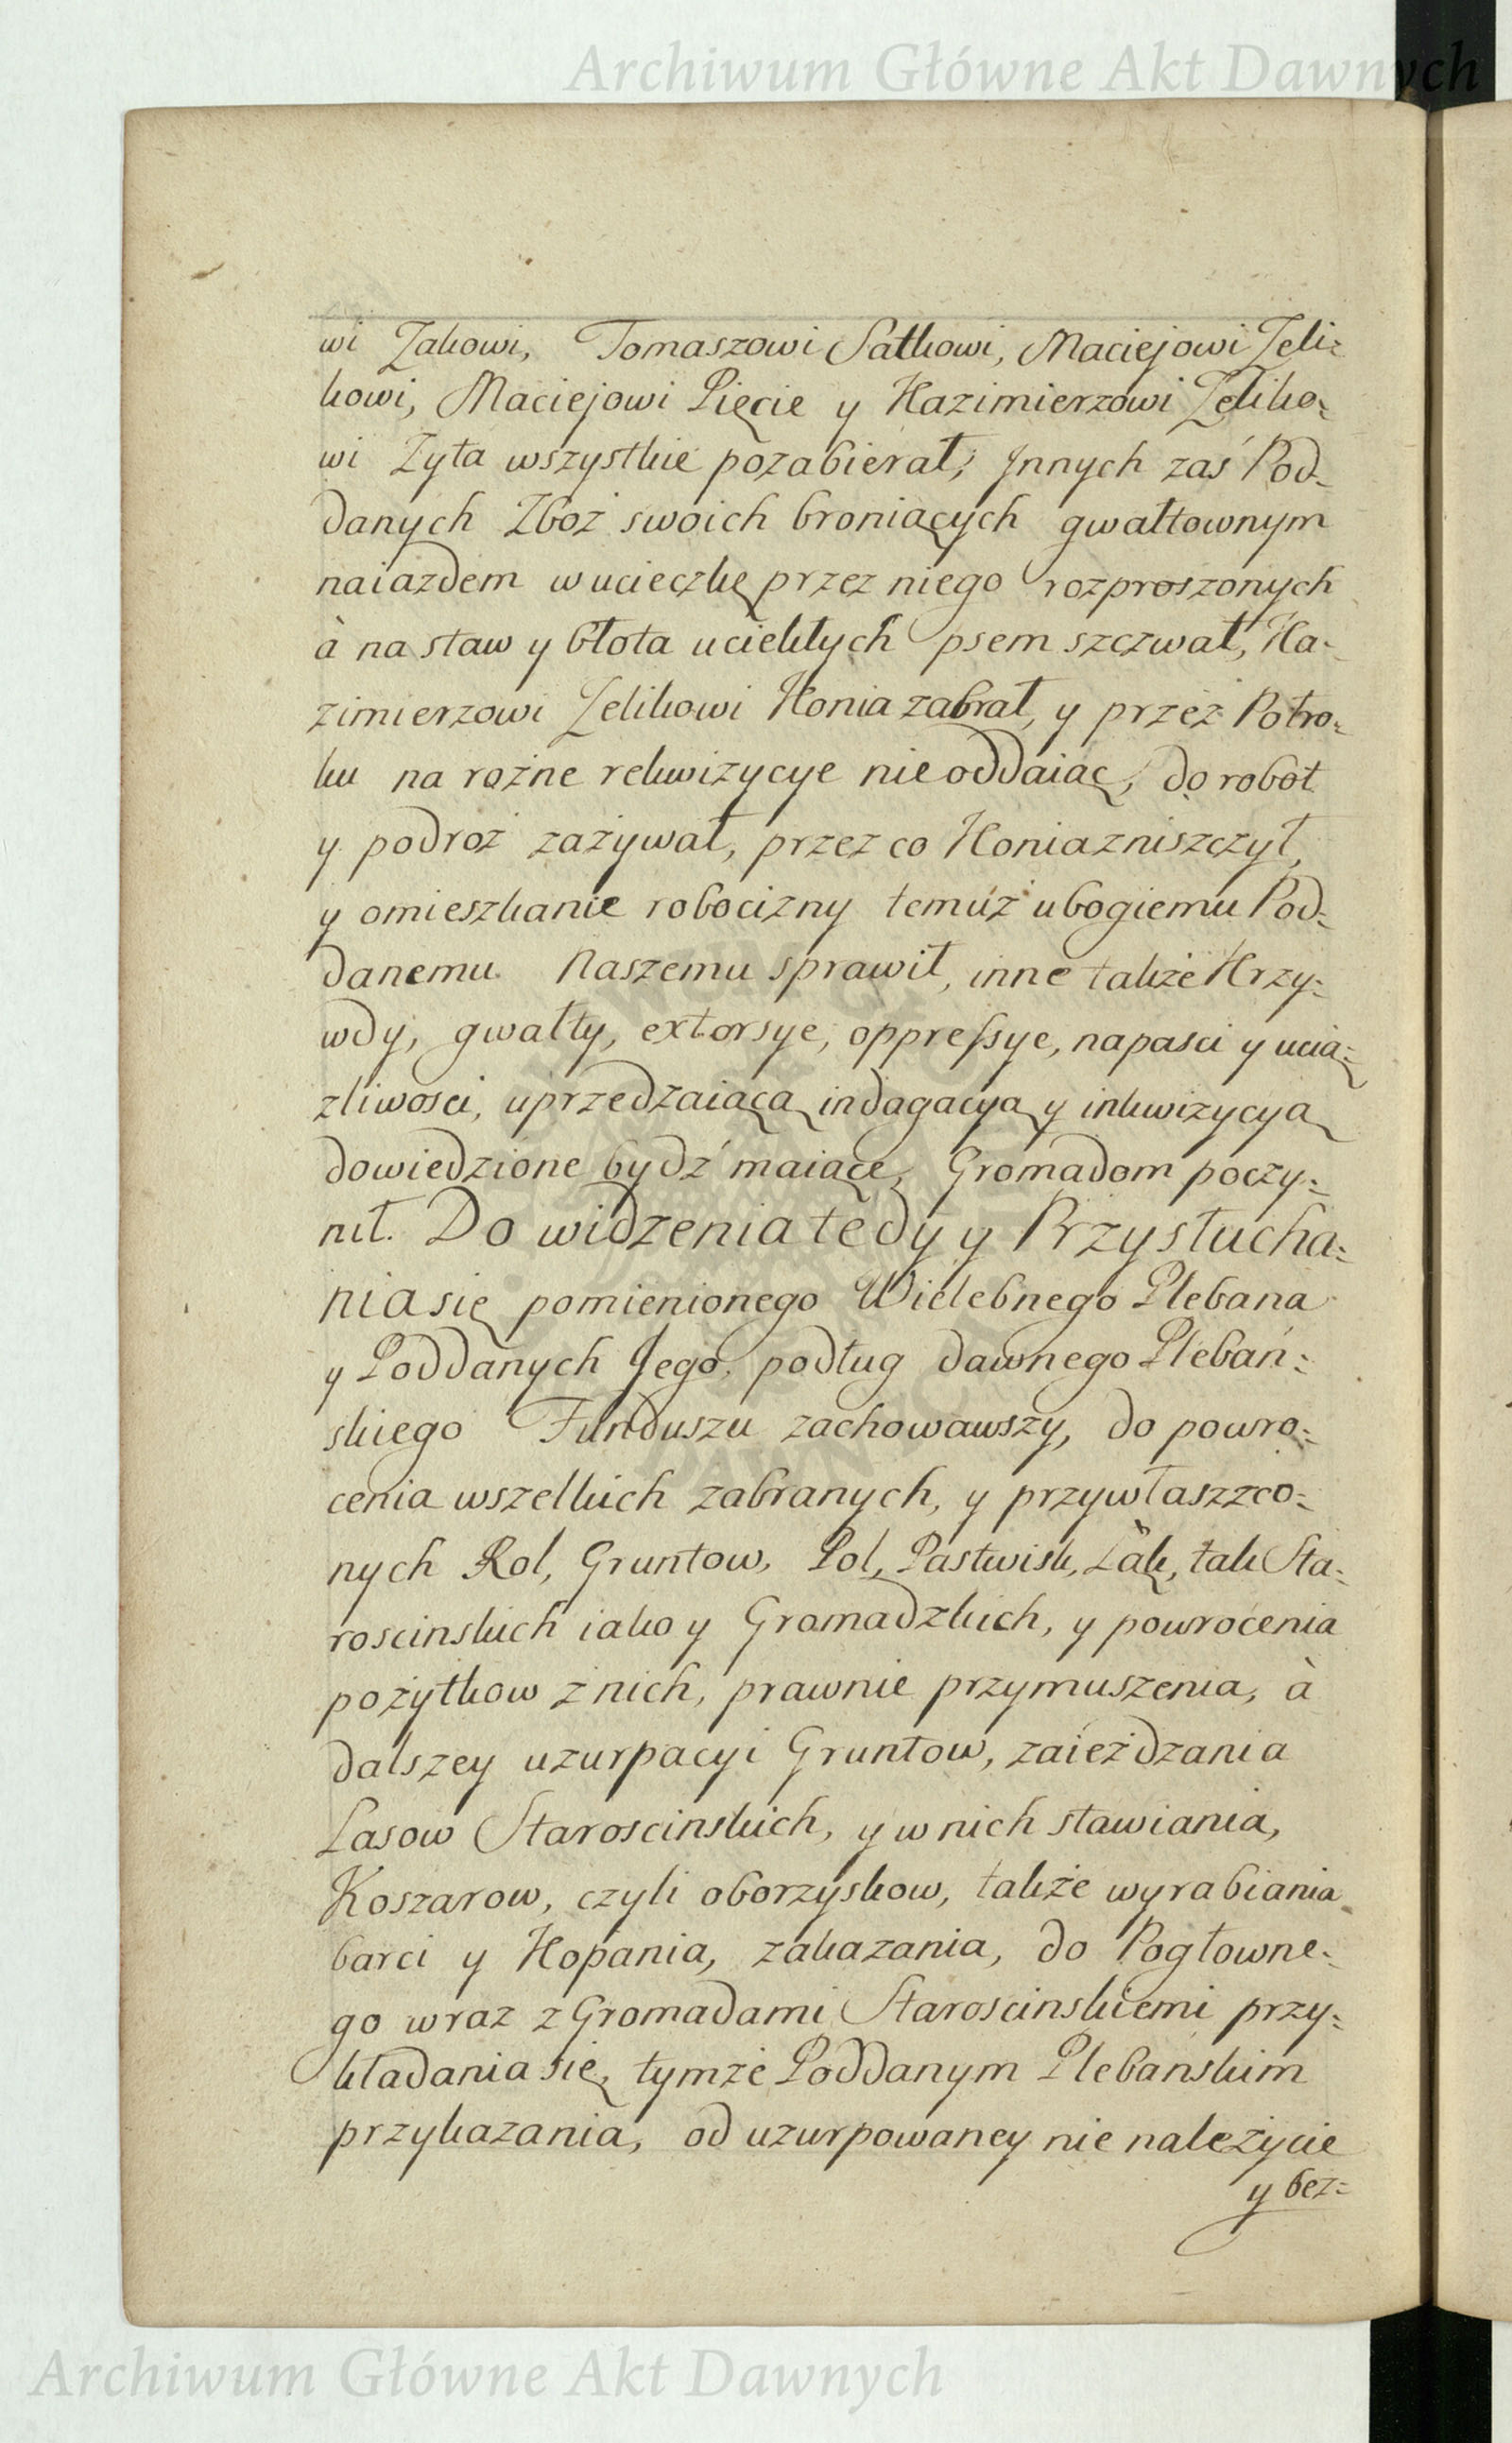 Archiwum Główne Akt Dawnych
wi Żakowi, Tomaszowi Satkowi, Maciejowi Zeli=
kowi, Maciejowi Pięcie y Kazimierzowi Zeliko=
wi Żyta wszystkie pozabierał; Jnnych zaś Pod=
danych Zboż swoich broniących gwałtownym
naiazdem w ucieczkę przez niego rozproszonych
à na staw y błota uciekłych psem szczwał, Ka=
zimierzowi Zelikowi Konia zabrał, y przez Potro=
ku na rożne rekwizycye nie oddaiąc, do robot
y podroż zażywał, przez co Konia zniszczył,
y omieszkanie robocizny temuż ubogiemu Pod=
danemu Naszemu sprawił, inne także Krzy=
wdy, gwałty, extorsye, oppressye, napasci y ucią=
zliwosci, uprzedzaiącą indagacyą y inkwizycyą
dowiedzione bydź maiące, Gromadom poczy=
nił. Do widzenia tedy y Przysłucha=
nia się pomienionego Wielebnego Plebana
y Poddanych Jego, podług dawnego Plebań=
skiego Funduszu zachowawszy, do powro=
cenia wszelkich zabranych, y przywłaszczo=
nych Rol, Gruntow, Pol, Pastwisk, Ląk, tak Sta=
roscinskich iako y Gromadzkich, y powrocenia
pożytkow z nich, prawnie przymuszenia, à
dalszey uzurpacyi Gruntow, zaieżdzania
Lasow Staroscinskich, y w nich stawiania,
Koszarow, czyli oborzyskow, także wyrabiania
barci y Kopania, zakazania, do Pogłowne=
go wraz z Gromadami Staroscinskiemi przy=
kładania się, tymże Poddanym Plebanskim
przykazania, od uzurpowaney nie należycie
y bez=
Archiwum Główne Akt Dawnych